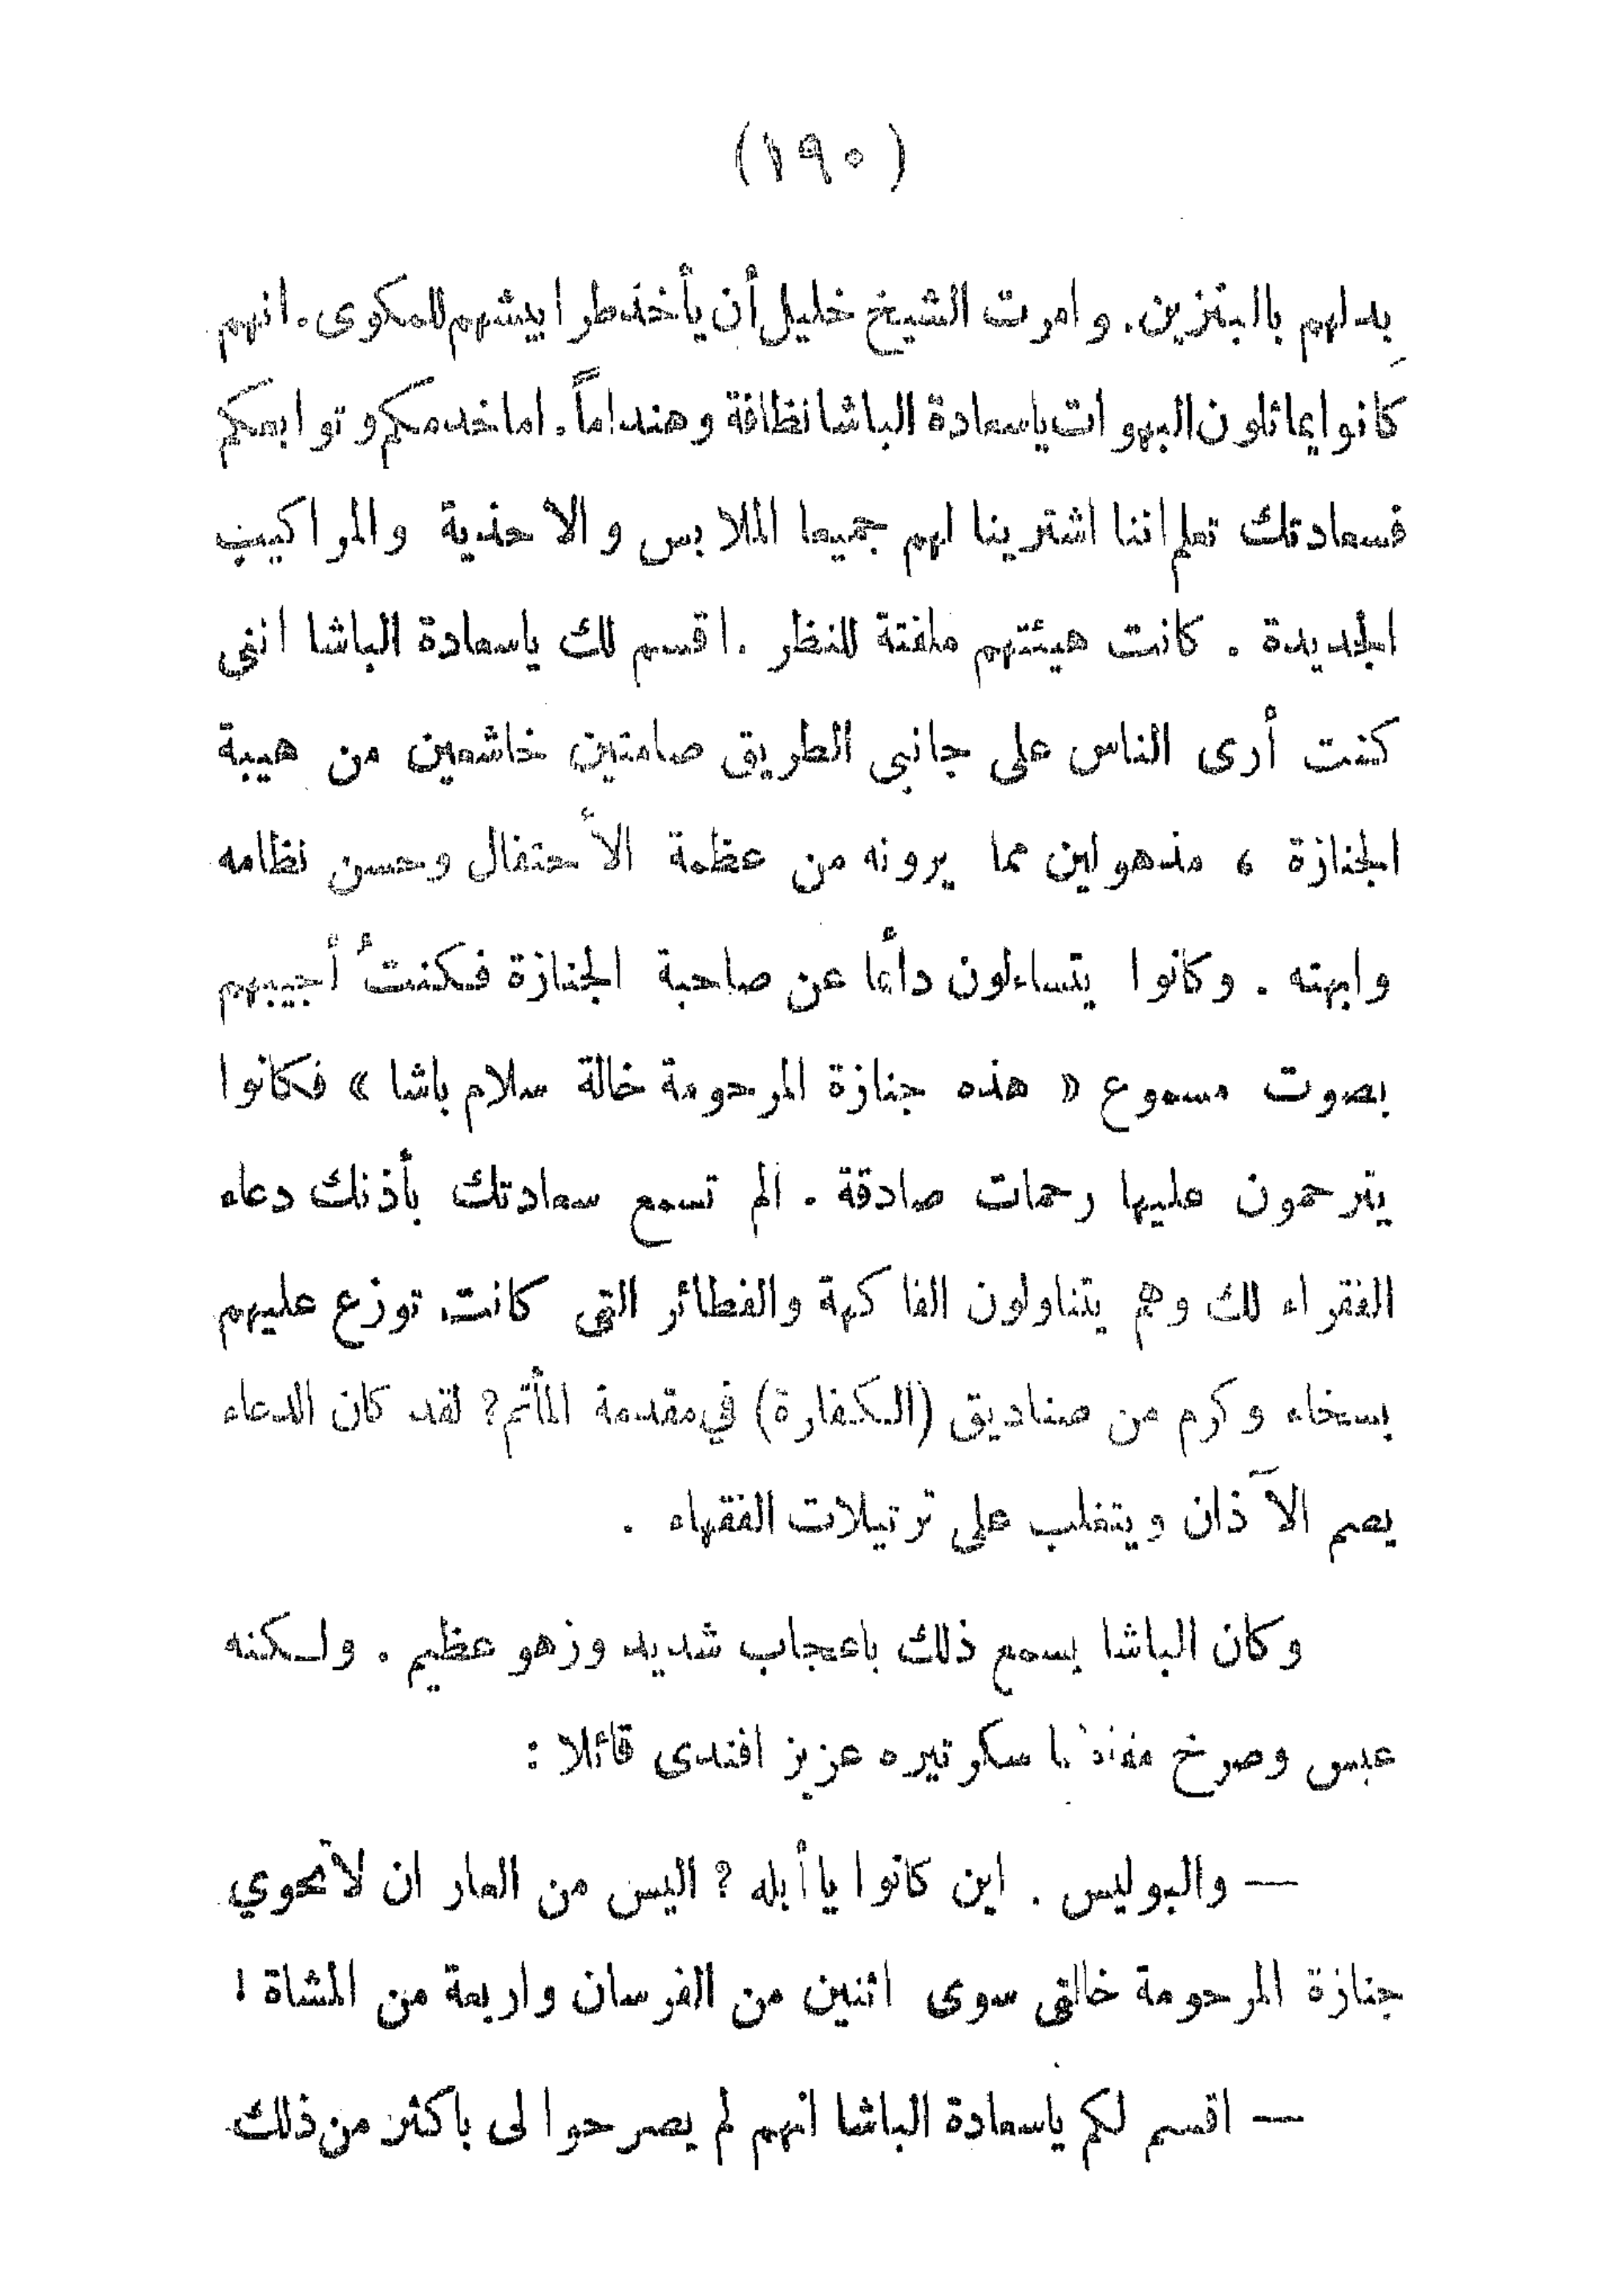 (١٩٠)
بدلهم بالبنزين. وامرت الشيخ خليل أن يأخذ طرابيشهم للمكوى. انهم
كانوا يماثلون البهوات ياسعادة الباشا نظافة وهنداماً. اما خدمكم وتوابعكم
فسعادتك تعلم اننا اشترينا لهم جميعا الملابس والاحذية والمراكيب
الجديدة. كانت هيئتهم ملفتة للنظر. اقسم لك ياسعادة الباشا انني
كنت أرى الناس على جانبي الطريق صامتين خاشعين من هيبة
الجنازة، مذهولين مما يرونه من عظمة الأحتفال وحسن نظامه
وابهته. وكانوا يتساءلون دأعا عن صاحبة الجنازة فكنتُ أجيبهم
بصوت مسموع « هذه جنازة المرحومة خالة سلام باشا » فكانوا
يترحمون عليها رحمات صادقة. الم تسمع سعادتك بأذنك دعاء
الفقراء لك وهم يتناولون الفاكهة والفطائر التي كانت توزع عليهم
بسخاء وكرم من صناديق (الكفارة) في مقدمة المأتم؟ لقد كان الدعاء
يصم الآذان ويتغلب على ترتيلات الفقهاء.
وكان الباشا يسمع ذلك باعجاب شديد وزهو عظيم. ولكنه
عبس وصرخ سكرتيره عزيز افندى قائلا:
— والبوليس. اين كانوا يا أبله؟ اليس من العار ان لاتحوي
جنازة المرحومة خالتي سوى اثنين من الفرسان واربعة من المشاة!
— اقسم لكم ياسعادة الباشا انهم لم يصرحوا لى باكثر من ذلك